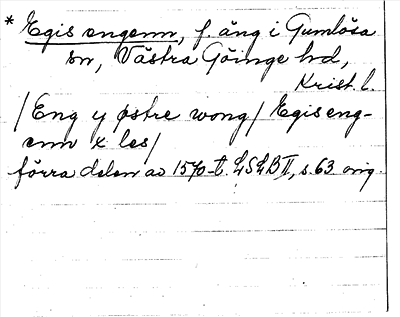 * Egis engenn, f. äng i Gumlösa
sn, Västra Göinge hd,
Krist. l.
/Eng y østre wong/ Egiseng-
enn x les/
förra delen av 1570-t. LSLB II, s. 63 orig.